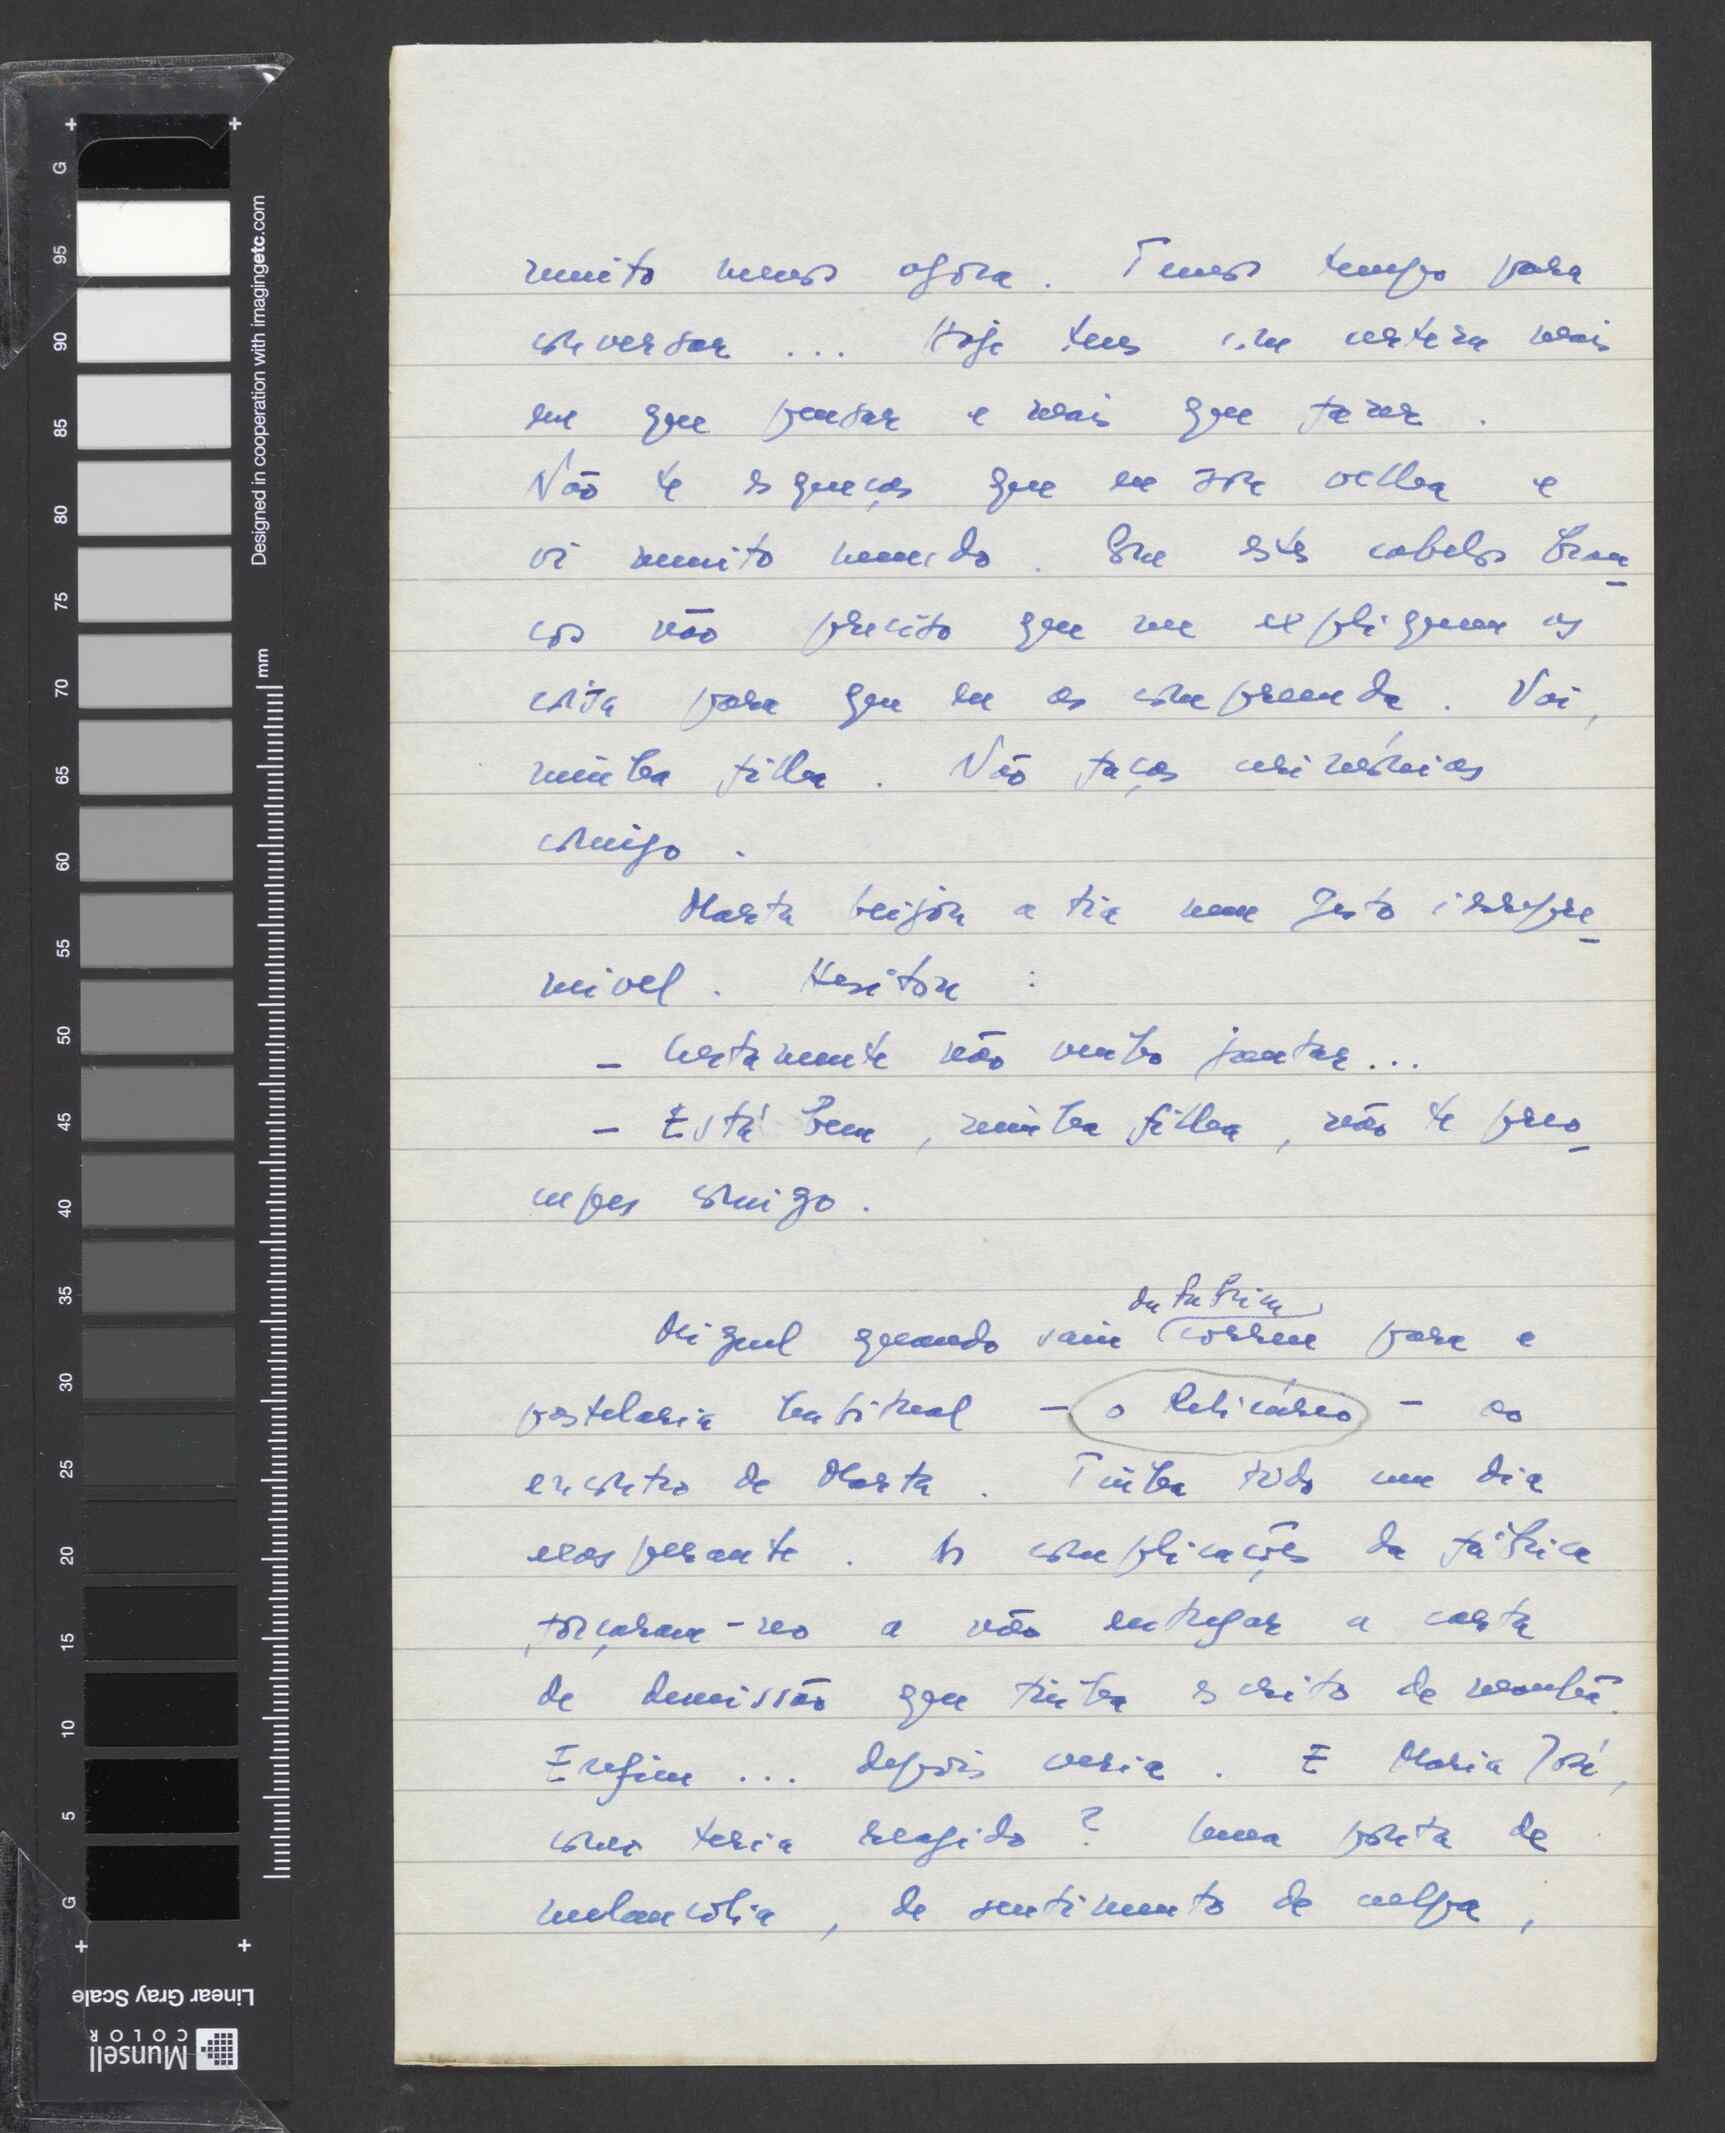 muito menos agora. Temos tempo para
conversar ... Hoje tens com certeza mais
em que pensar e mais que fazer.
Não te esqueças que eu sou velha e
vi muito mundo. Com estes cabelos bran-
cos não preciso que me expliquem as
coisas para que eu as compreenda. Vai,
minha filha. Não faças cerimónias
comigo.
Marta beijou a tia num gesto irrepri-
mivel. Hesitou:
- Certamente não venho jantar...
- Está bem, minha filha, não te preo-
cupes comigo.
da fabrica
Miguel quando saiu correu para a
pastelaria habitual - o Relicário - ao
encontro de Marta. Tinha tido um dia
exasperante. As complicações da fábrica
forçaram-no a não entregar a carta
de demissão que tinha escrito de manhã.
Enfim ... depois veria. E Maria José,
como teria reagido? Uma ponta de
melancolia, de sentimento de culpa,
G 95 90 85 80 75 70 65 60 55 50 45 40 35 30 25 20 15 10 5 G
Designed in cooperation with imagingetc.com
mm
Linear Gray Scale
Munsell
COLOR